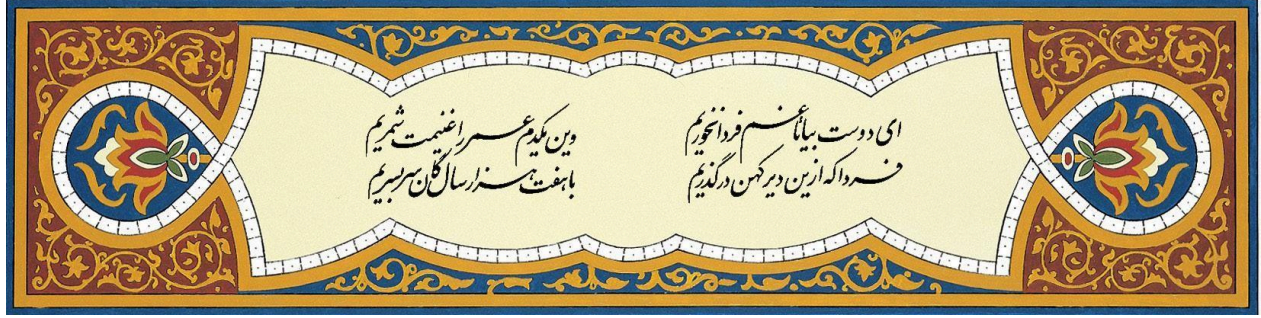 ای دوست بیا تا غم فردا نخوریم
وین یکدم عمر را غنیمت شمریم
فردا که ازین دیر کهن درگذریم
با هفت هزار سالگان سربسریم